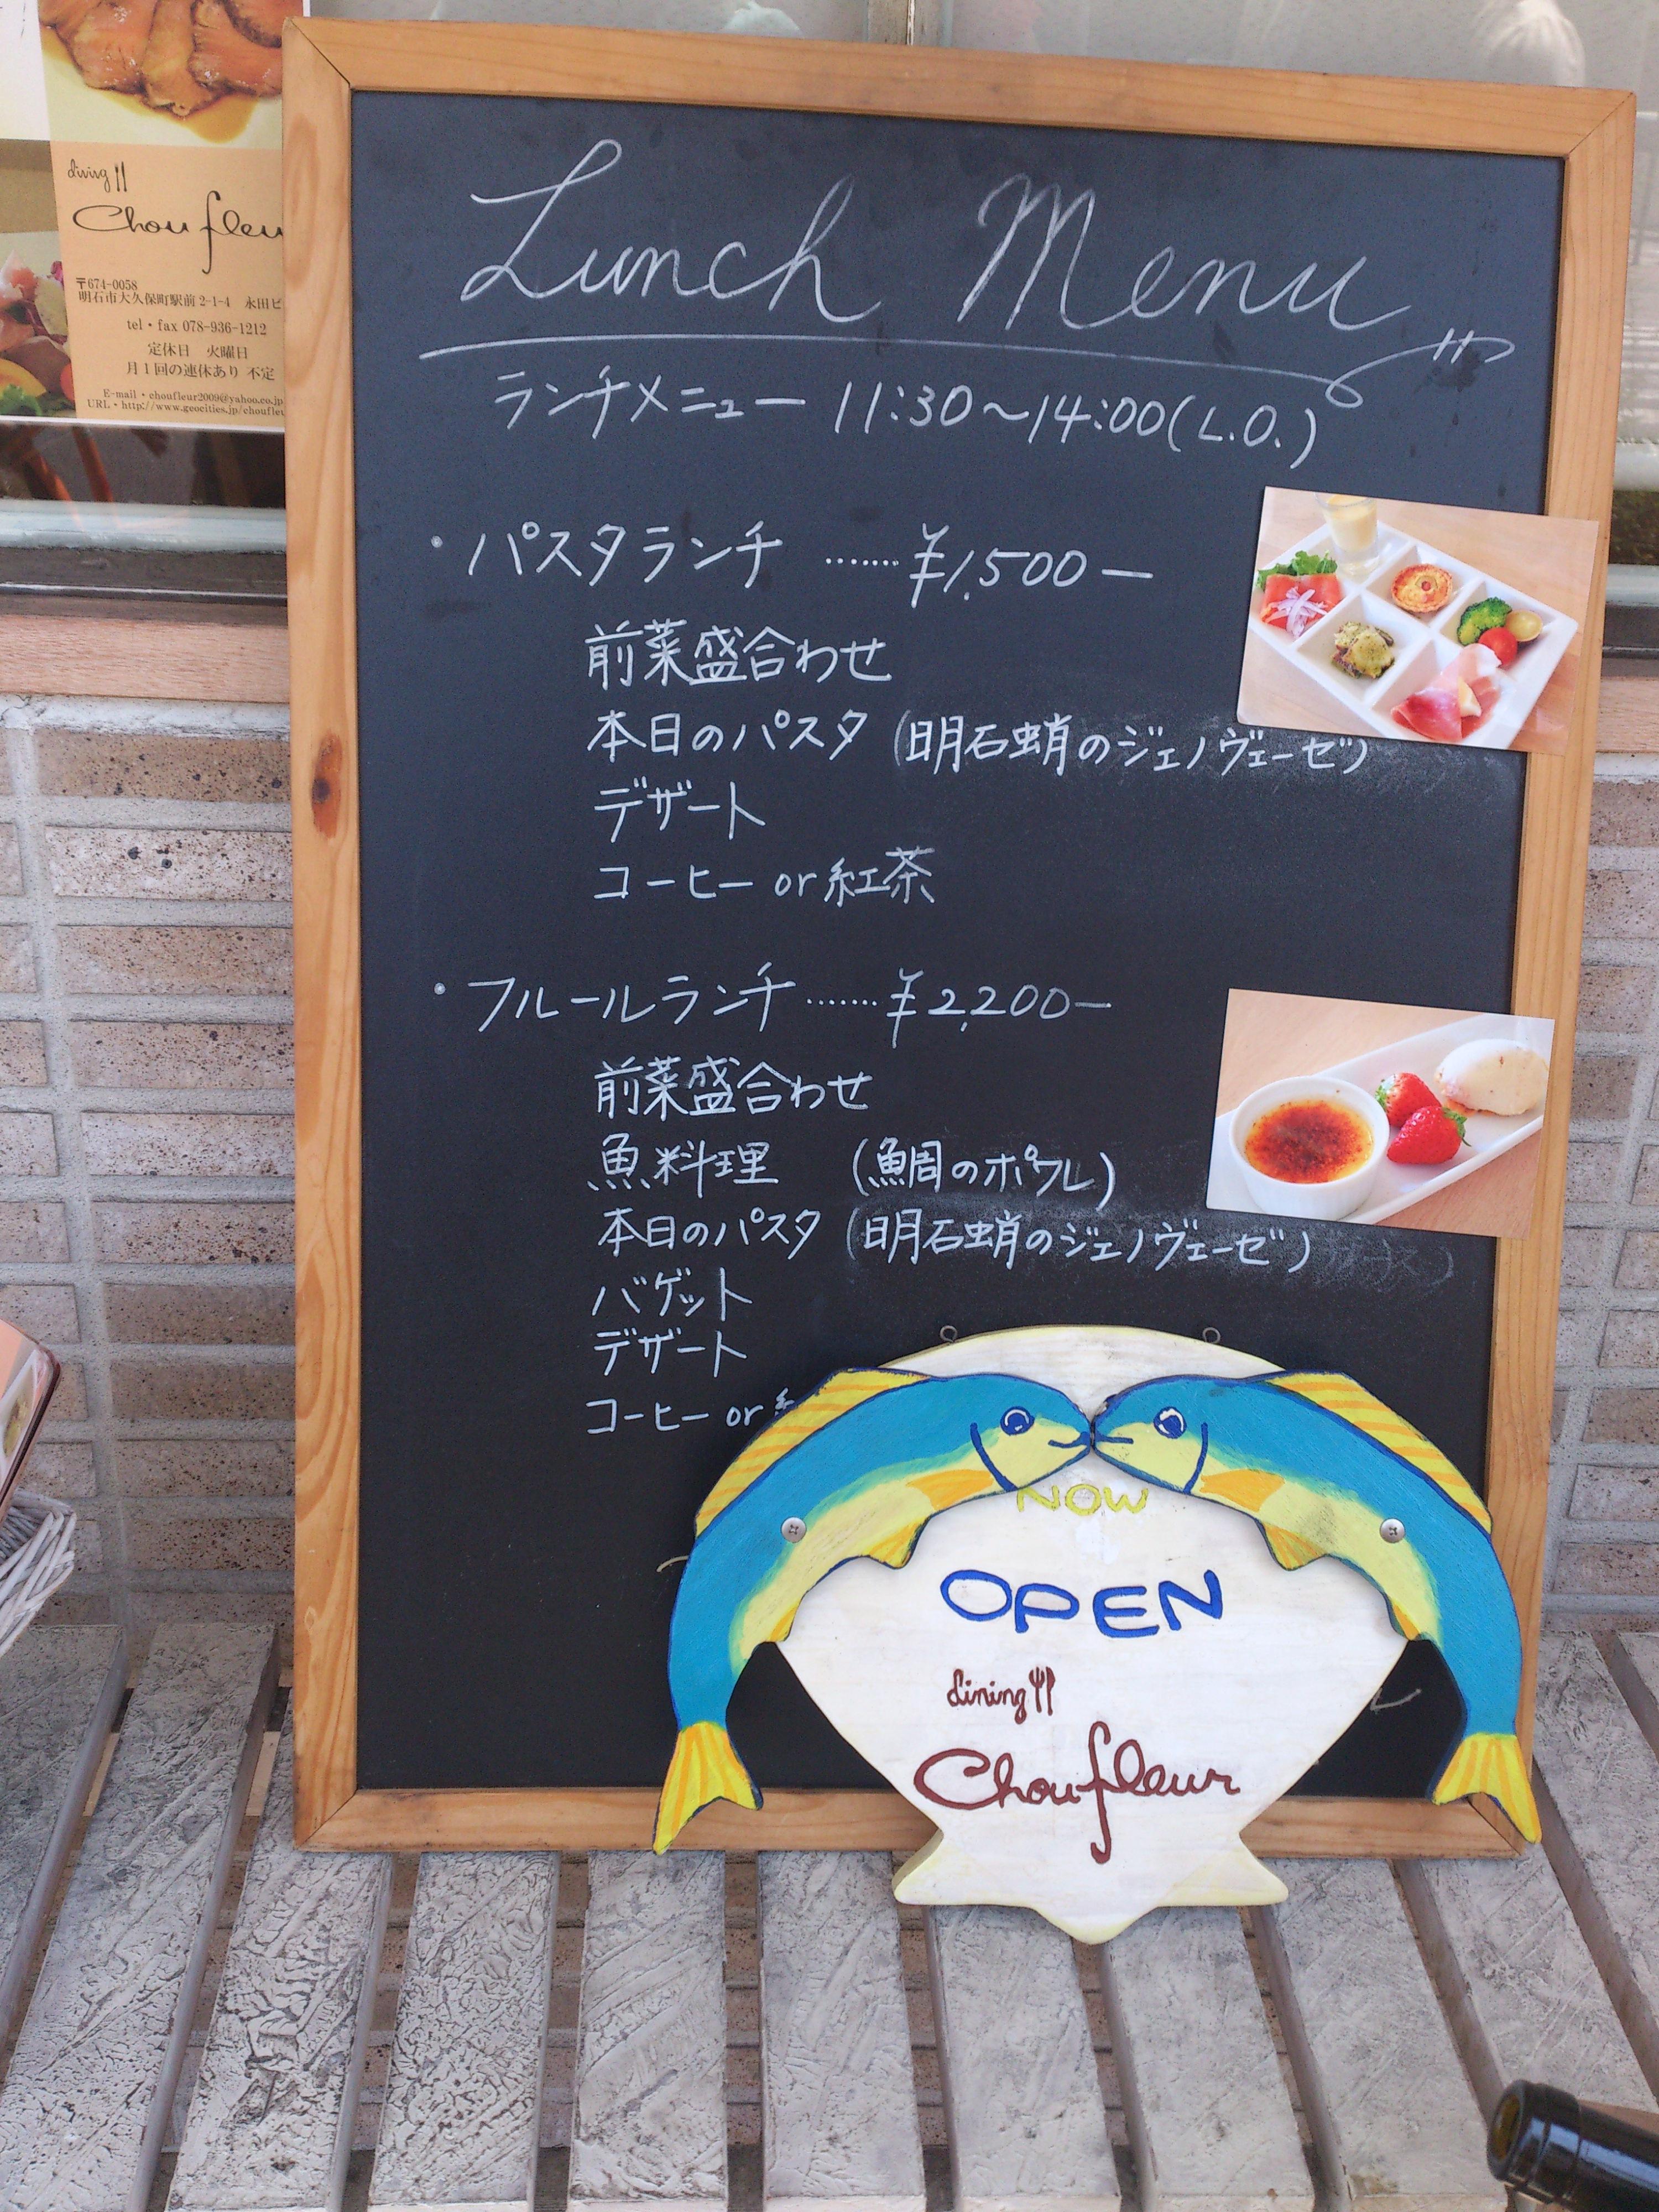 dining
Chou fleu
〒674-0058
明石市大久保町駅前 2-1-4 永田ビ
tel・fax 078-936-1212
定休日 火曜日
月1回の連休あり 不定
E-mail・choufleur2009@yahoo.co.jp
URL・http://www.geocities.jp/choufleu
Lunch Menu
ランチメニュー 11:30〜14:00(L.O.)
・パスタランチ ……¥1,500ー
前菜盛合わせ
本日のパスタ (明石蛸のジェノヴェーゼ)
デザート
コーヒー or 紅茶
・フルールランチ ……¥2,200ー
前菜盛合わせ
魚料理 (鯛のポワレ)
本日のパスタ (明石蛸のジェノヴェーゼ)
バゲット
デザート
コーヒー or
NOW
OPEN
dining
Choufleur